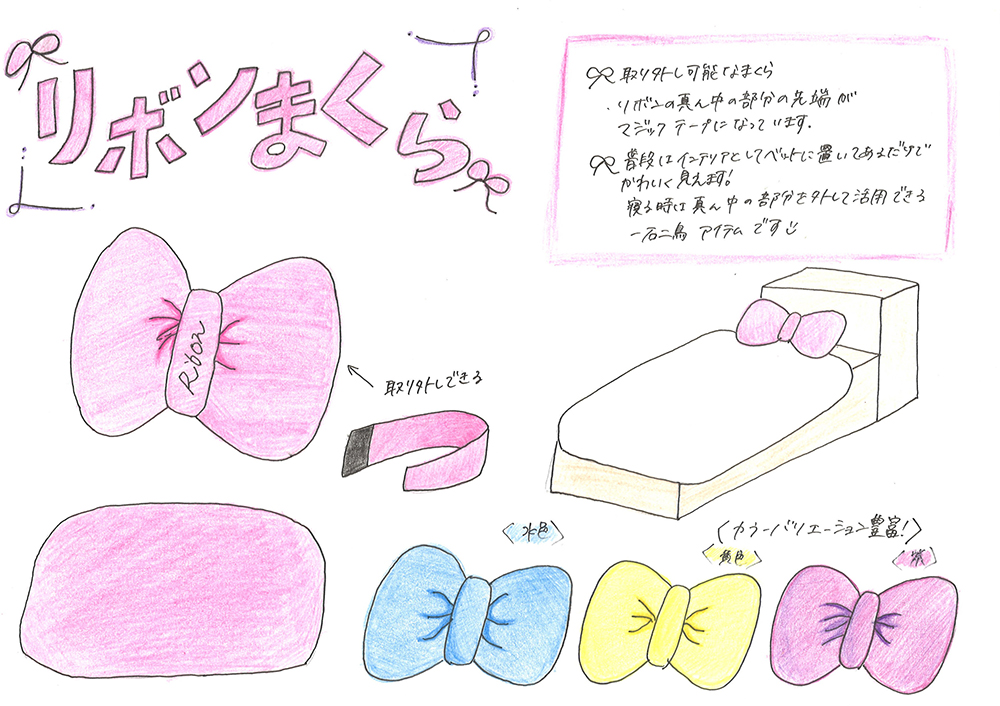 リボンまくら
取り外し可能なまくら
・リボンの真ん中の部分の先端が
マジックテープになっています.
普段はインテリアとしてベットに置いてあるだけで
かわいく見えます!
寝る時は真ん中の部分を外して活用できる
一石二鳥 アイテムです
Ribon
取り外しできる
〈カラーバリエーション豊富!〉
水色
黄色
紫